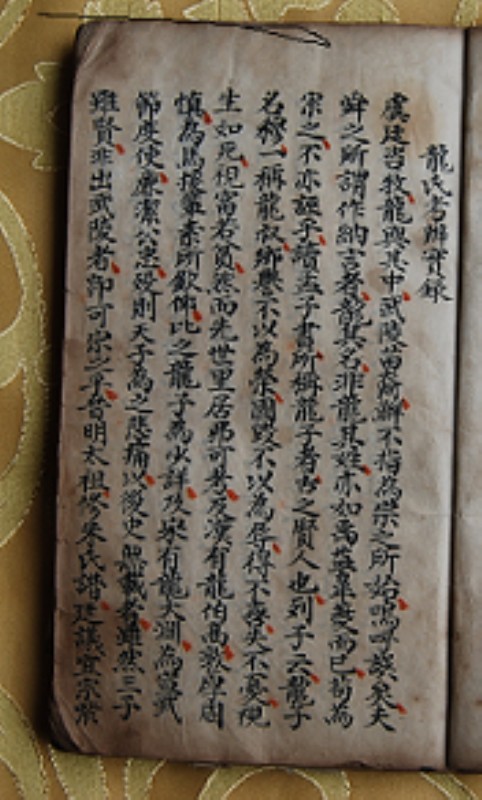 龍氏考辦實錄
虞廷咨牧龍與其中武陵苗裔辦不指為崇之所始嗚呼誤矣夫
舜之所謂作納言者龍其名非龍其姓亦如禹益皋夔而已茍為
宗之不亦誣乎讀孟子書所稱龍子者古之賢人也列子云龍子
名穆一稱龍叔鄉譽不以為榮國毀不以為辱得不喜失不憂視
生如死視富若貧然而先世里居弗可考及漢有龍伯高敦厚周
慎為馬援輩素所欽佩比之龍子為少詳及宋有龍大淵為寧武
節度使廉潔公忠歿則天子為之悲痛以後史無載者雖然三子
雖賢非出武陵者即可崇之乎昔明太祖修朱氏譜廷議宜宗紫